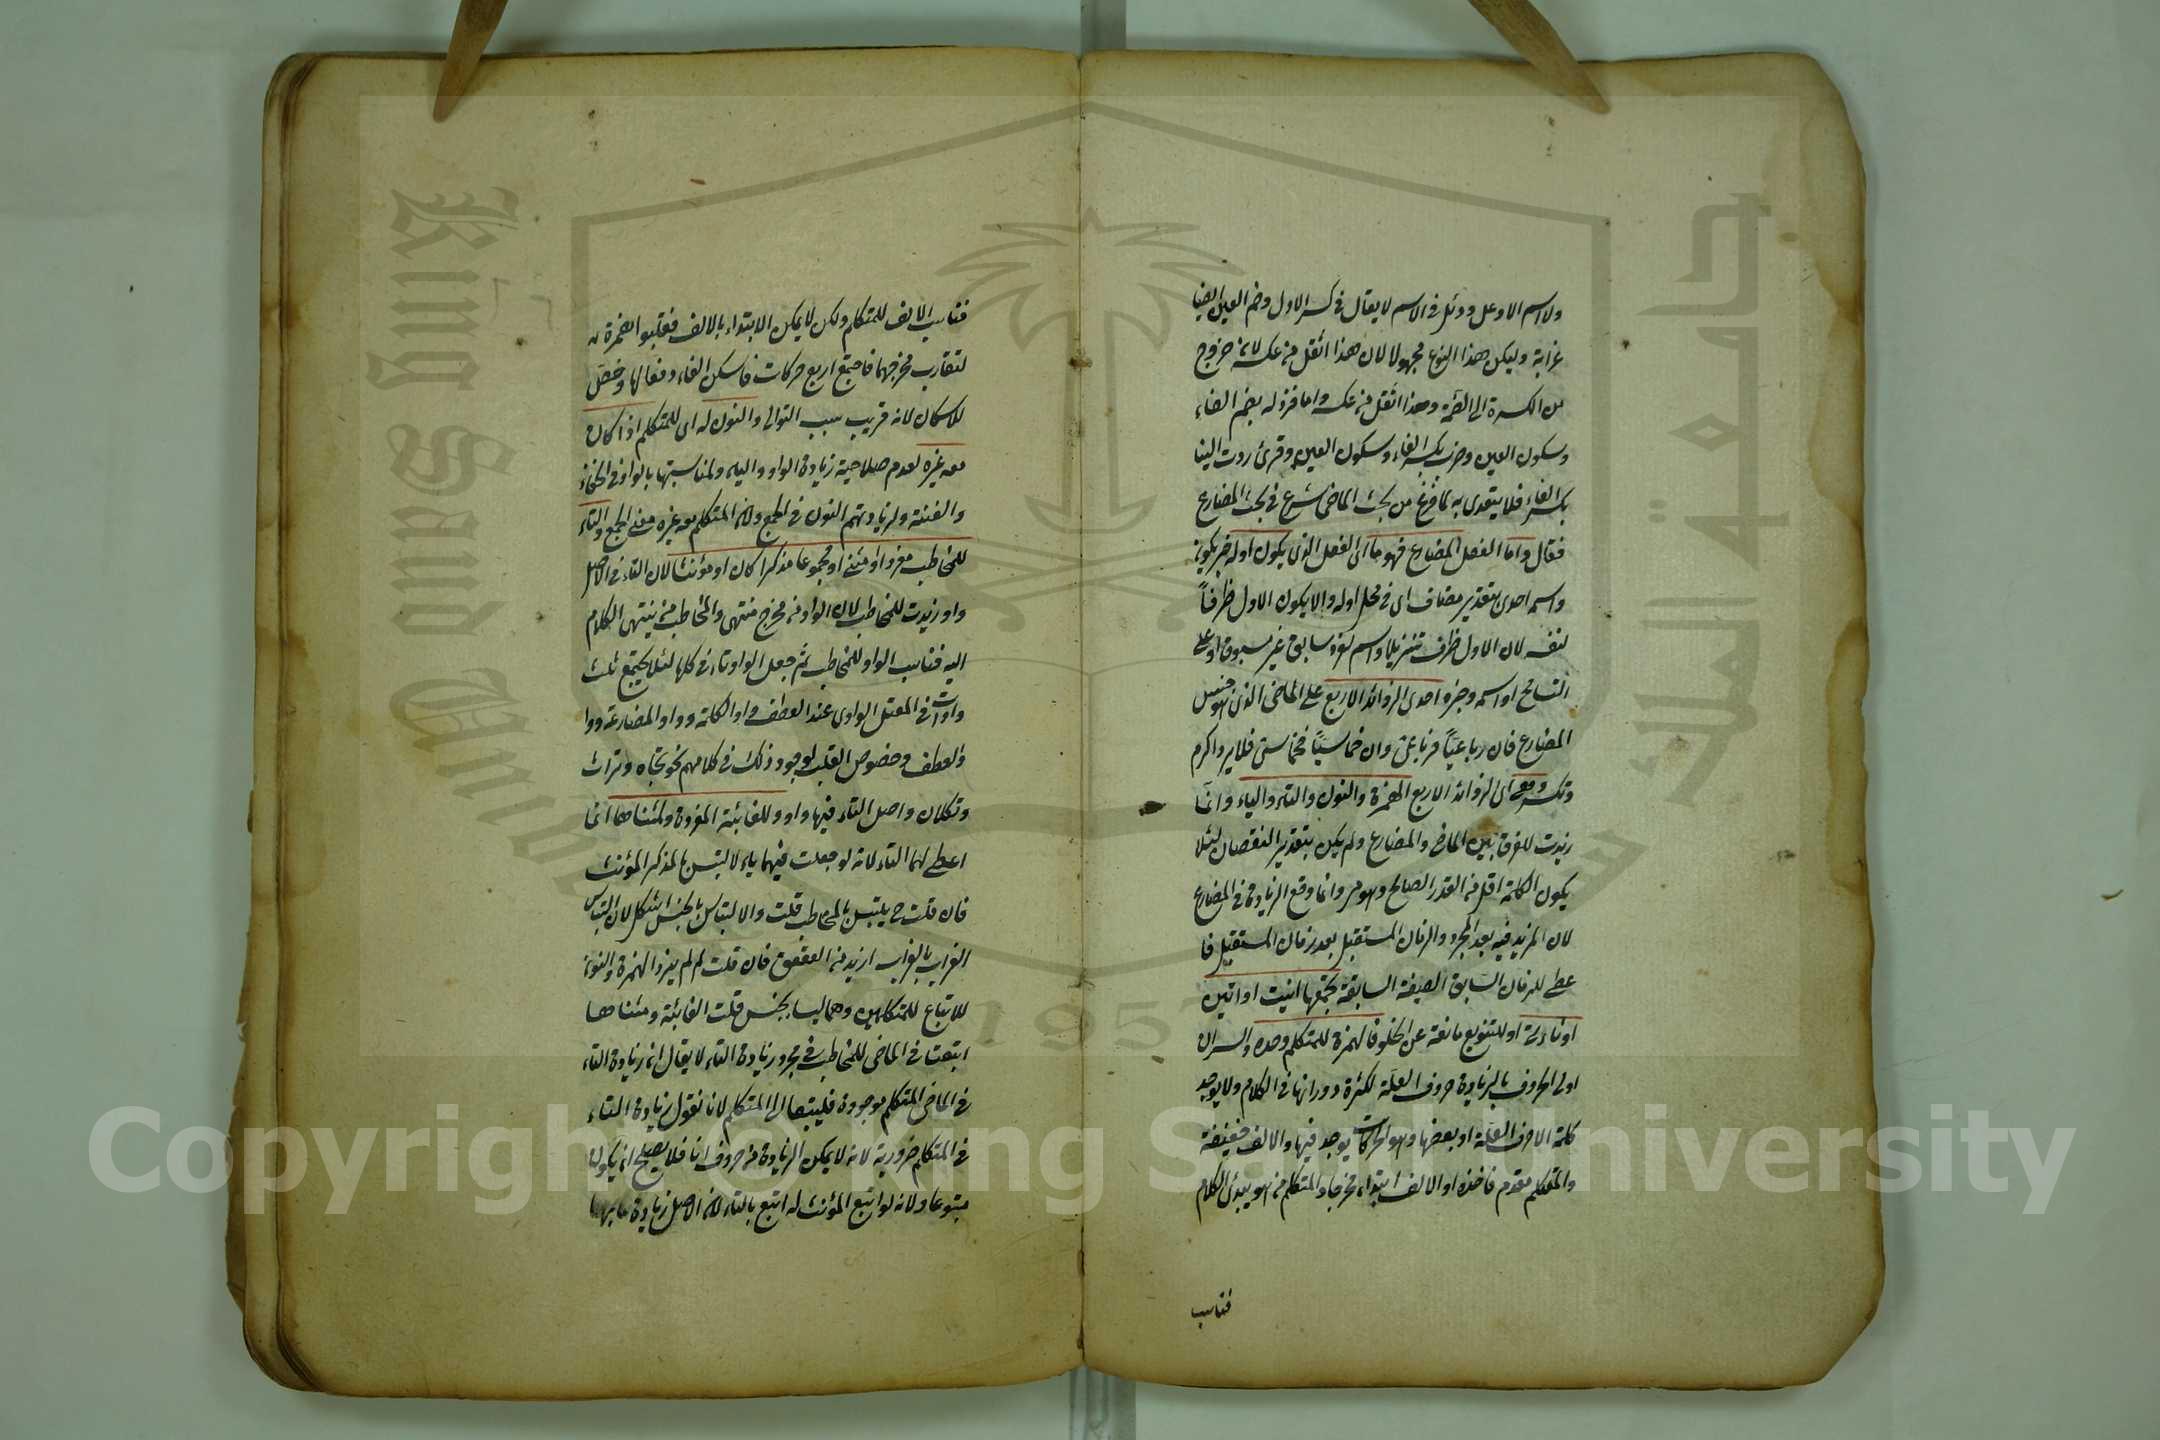 ولا اسم الا وعل ودئل في الاسم لا يقال في كسر الاول وضم العين ايضا
غرابة وليكن هذا النوع مجهولا لان هذا اثقل من عكسه لانه خروج
من الكسرة الى الضمة وهذا اثقل من عكسه واما فزد له بضم الفاء
وسكون العين وضرب بكسر الفاء وسكون العين وقرئ ردت الينا
بكسر الفاء فلا يتعدى به لما فرغ من بحث الماضي شرع في بحث المضارع
فقال واما الفعل المضارع فهو ما اى الفعل الذى يكون اوله خبر يكون
واسمه احدى بتقدير مضاف اى في محل اوله والا يكون الاول ظرفاً
لنفسه لان الاول ظرف تنزيلا واسم لفرد سابق غير مسبوق او على
التسامح او اسمه وخبره احدى الزوائد الاربع على الماضى الذى هو جنس
المضارع فان رباعيّاً فرباعىّ وان خماسيّاً فخماسى فلا يرد اكرم
وتكسر وهى اى الزوائد الاربع الهمزة والنون والتاء والياء وانما
زيدت للفرق بين الماضى والمضارع ولم يكن بتقدير النقصان لئلا
يكون الكلمة اقل من القدر الصالح وهو مر وانما وقع الزيادة في المضارع
لان المزيد فيه بعد المجرد والزمان المستقبل بعد زمان المستقبل فا
عطى للزمان السابق الصيغة السابقة يجمعها انيت او اتين
او نأتى او للتنويع مانعة عن الخلو فالهمزة للمتكلم وحده والسر ان
اولى الحروف بالزيادة حروف العلة لكثرة دورانها في الكلام ولا يوجد
كلمة الا حرف العلة او بعضها وهو الحركات يوجد فيها والالف خفيفة
والمتكلم مقدم فاخذه او الالف ابتداء مخرجا والمتكلم من هو يبدئ الكلام
فناسب
فناسب الالف للمتكلم ولكن لا يمكن الابتداء بالالف فقلبوا همزة له
لتقارب مخرجهما فاجتمع اربع حركات فاسكن الفاء دفعا لها وخصّ
للاسكان لانه قريب سبب التوالى والنون له اى للمتكلم اذا كان
معه غيره لعدم صلاحية زيادة الواو والياء ولمناسبتها بالواو في الخفاء
والغنة ولزيادتهم النون في الجمع ولان المتكلم معه غيره معنى الجمع والتاء
للمخاطب مفردا او مثنى او مجموعا مذكرا كان او مؤنثا لان التاء في الاصل
واو زيدت للمخاطب لان الواو من مخرج منتهى والمخاطب من ينتهى الكلام
اليه فناسب الواو للمخاطب ثم جعل الواو تاء في كلها لئلا يجتمع ثلث
واوات في المعتل الواوى عند العطف واو الكلمة وواو المضارعة وواو
والعطف وخصوص القلب لوجود ذلك في كلامهم نحو تجاه وتراث
وتكلان واصل التاء فيها واو وللغائبة المفردة ولمثناهما انما
اعطى لهما التاء لانه لو جعلت فيهما ياء لا لتبس بالمذكر المؤنث
فان قلت ح يلتبس بالمخاطب قلت والالتباس بالجنس اشكل لان التباس
الغراب بالغراب ازيد من العقعق فان قلت لم لم يزد الهمزة والنون
للاتباع للمتكلمين وهما ليسا بجنس قلت الغائبة ومثناهما
اتبعت في الماضى للمخاطب في مجرد زيادة التاء لا يقال ان زيادة التاء
في الماضى المتكلم موجودة فليتبعا الى المتكلم لانا نقول زيادة التاء
في المتكلم ضرورية لانه لا يمكن الزيادة من حروف انا فلا يصلح ان يكون
متبوعا ولانه لو اتبع المؤنث له اتبع بالتاء لان الاصل زيادة